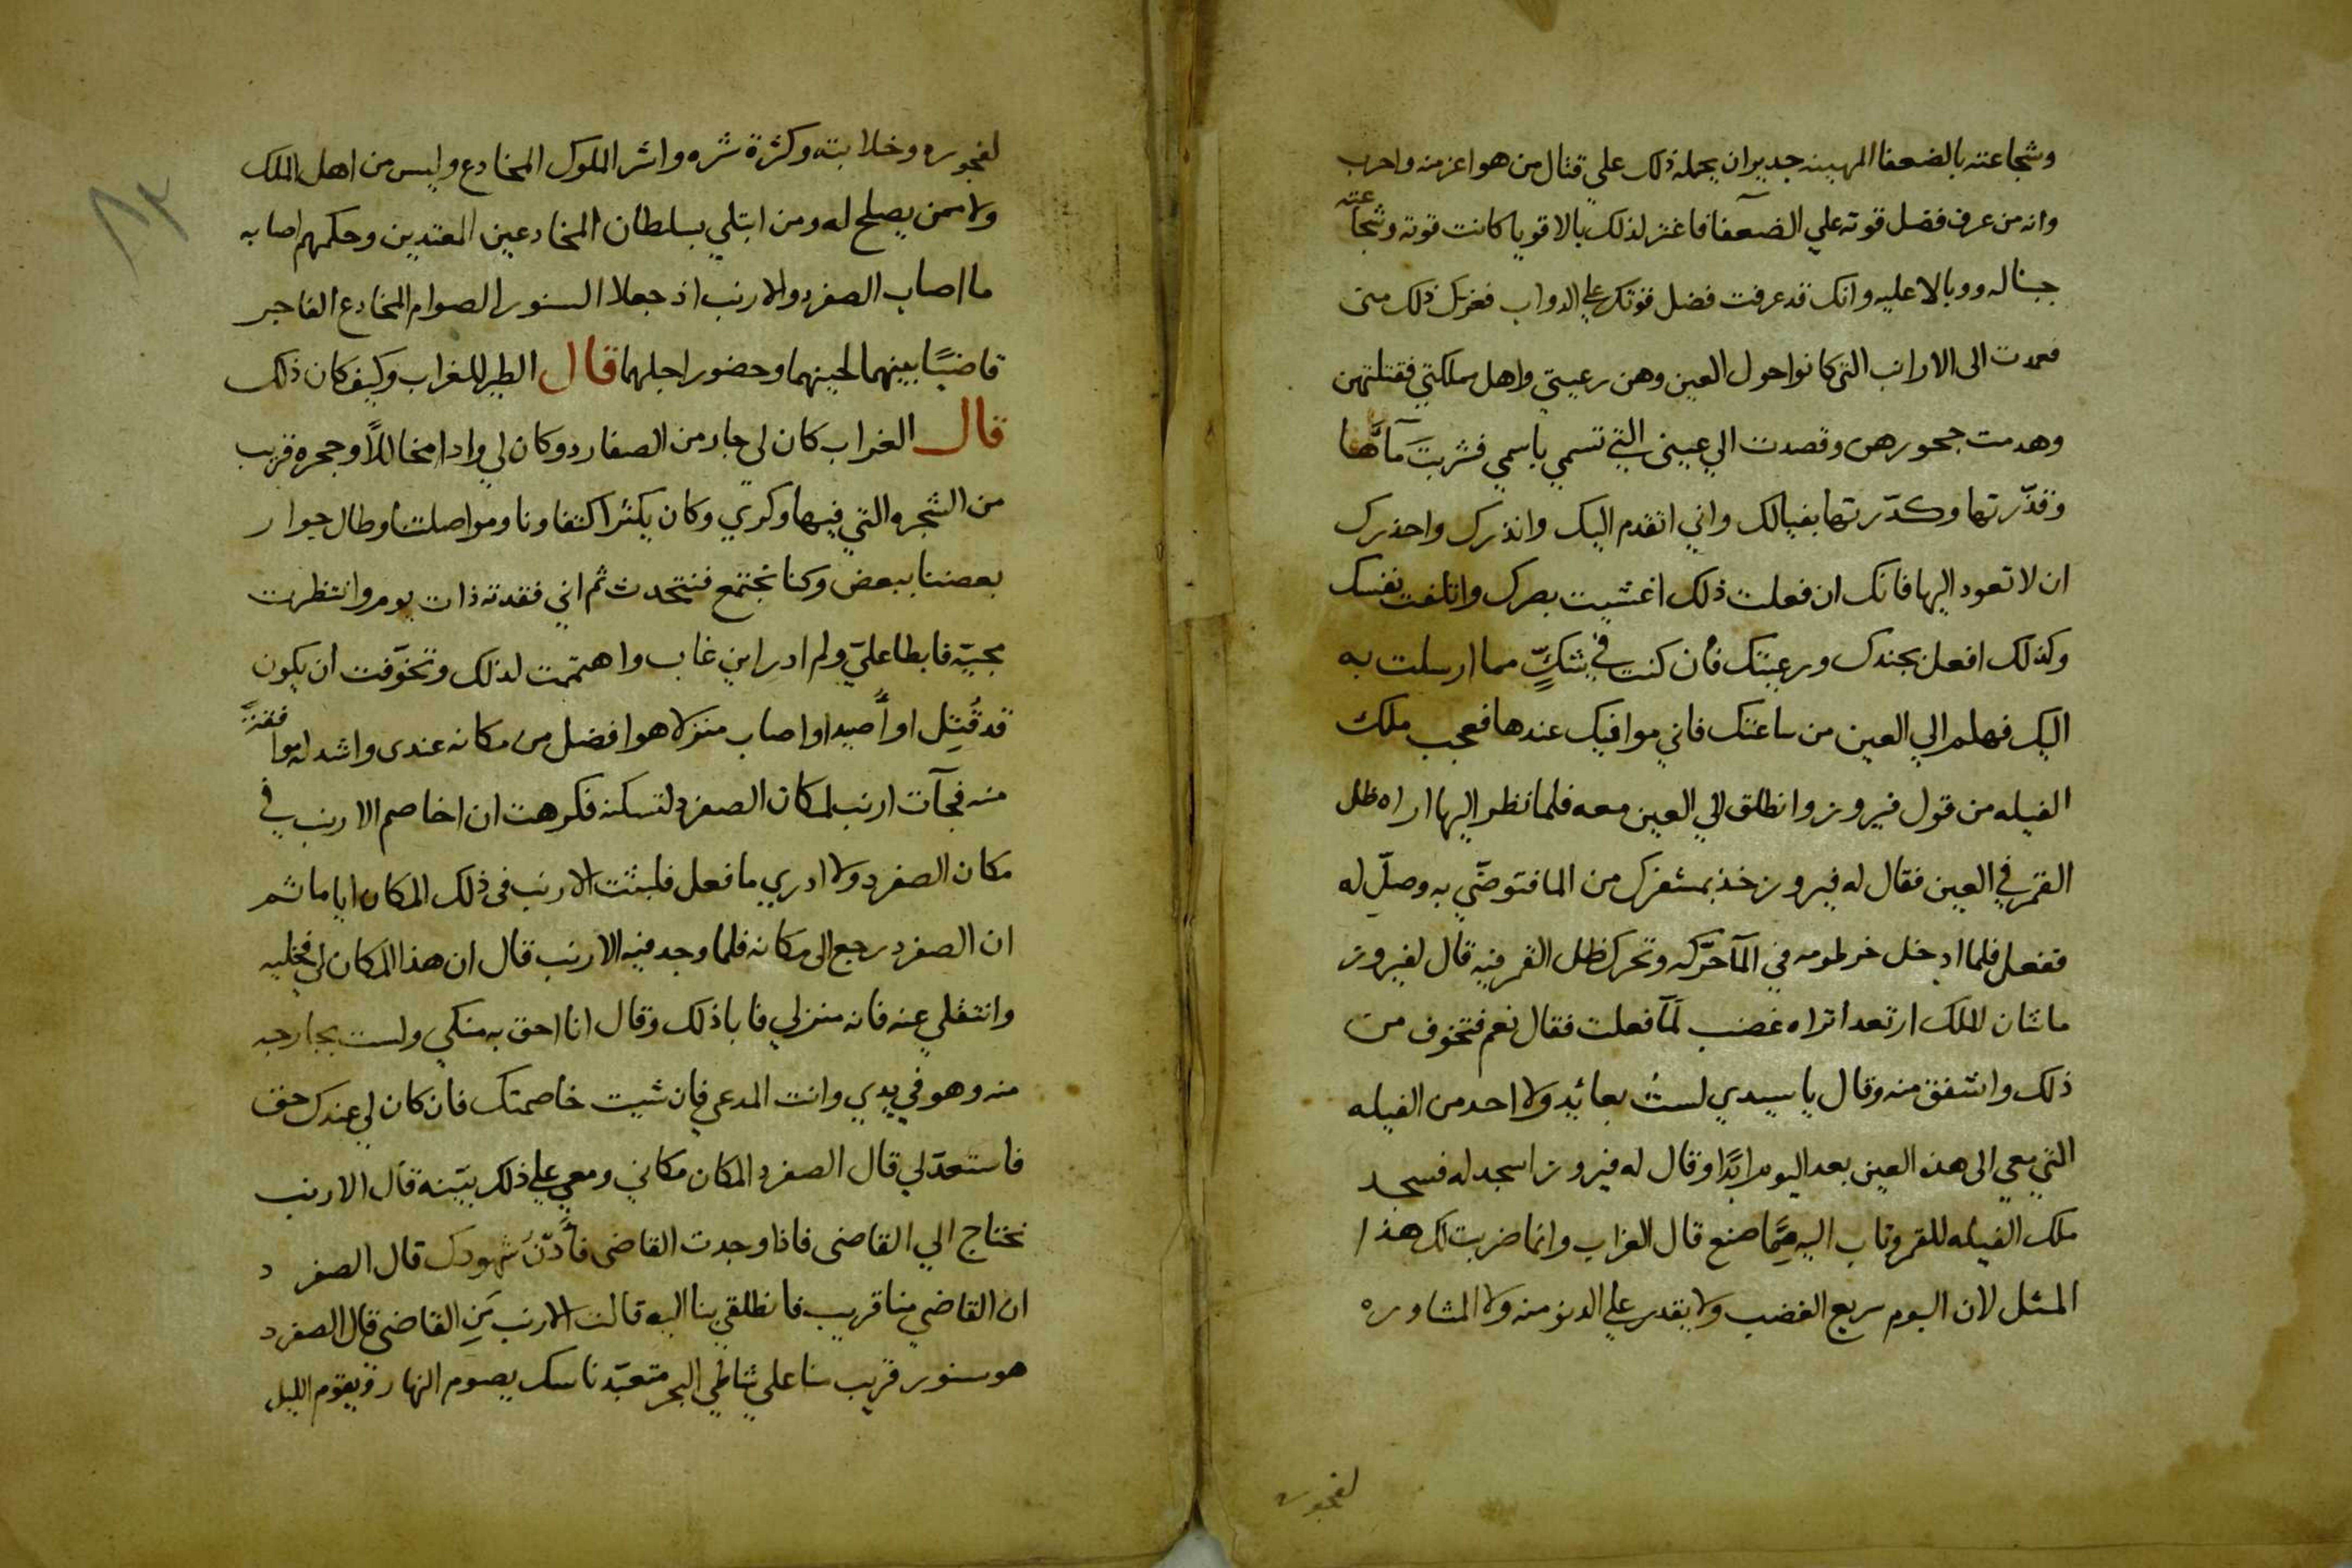 وشجاعته بالضعفا المهينه جدير ان يحمله ذلك علي قتال من هو اعز منه واحرب
وانه من عرف فضل قوته علي الضعفا فاغتر لذلك بالاقويا كانت قوته وشجاعته
حينا له ووبالا عليه وانك قد عرفت فضل قوتك علي الدواب فغرك ذلك مني
فعمدت الى الارانب التي كانوا حول العين وهن رعيتي واهل مملكتي فقتلتهن
وهدمت جحورهن وقصدت الي عيني التي تسمي باسمي فشربت مآئها
وقذّرتها وكدّرتها بفيالك واني اتقدم اليك وانذرك واحذرك
ان لا تعود اليها فانك ان فعلت ذلك اغشيت بصرك واتلفت نفسك
وكذلك افعل بجندك ورعيتك فان كنت في شكٍّ مما ارسلت به
اليك فهلم الي العين من ساعتك فاني موافيك عندها فعجب ملك
الفيله من قول فيروز وانطلق الي العين معه فلما نظر اليها اراه ظل
القمر في العين فقال له فيروز خذ بمشفرك من الما فتوضّي به وصلّ له
ففعل فلما ادخل خرطومه في المآ حرّكه وتحرك ظل القمر فيه قال لفيروز
ما شان الملك ارتعد اتراه غضب لمّا فعلت فقال نعم فتخوف من
ذلك واشفق منه وقال يا سيدي لستُ بعائدٍ ولا احد من الفيله
التي معي الى هذه العين بعد اليوم ابدًا وقال له فيروز اسجد له فسجد
ملك الفيله للقمر وتاب اليه مِمّا صنع قال الغراب وانما ضربت لك هذا
المثل لان البوم سريع الغضب ولا يقدر علي الدنو منه ولا المشاوره
لفجوره
٨٢
لفجوره وخلابته وكثرة شره واشر الملوك المخادع وليس من اهل الملك
ولا ممن يصلح له ومن ابتلي بسلطان المخادعين المعتدين وحكمهم اصابه
ما اصاب الصفرد والارنب اذ جعلا السنور الصوام المخادع الفاجر
قاضيًا بينهما لحينهما وحضور اجلهما قال الطير للغراب وكيف كان ذلك
قال الغراب كان لي جار من الصفارد وكان لي وادا مخاللاً وجحره قريب
من الشجره التي فيها وكري وكان يكثر اكتفاونا ومواصلتنا وطال جوار
بعضنا ببعض وكنا نجتمع فنتحدث ثم اني فقدته ذات يوم وانتظرت
مجيّه فابطا عليّ ولم ادر اين غاب واهتممت لذلك وتخوّفت ان يكون
قد قُتِل او أُصيد او اصاب منزلا هو افضل من مكانه عندى واشد له موافقةً
منه فجآت ارنب لمكان الصفرد لتسكنه فكرهت ان اخاصم الارنب في
مكان الصفرد ولا ادري ما فعل فلبثت الارنب فى ذلك المكان اياما ثم
ان الصفرد رجع الى مكانه فلما وجد فيه الارنب قال ان هذا المكان لي فخليه
وانتقلي عنه فانه منزلي فابا ذلك وقال انا احق به منكي ولست بخارجه
منه وهو في يدي وانت المدعي فان شيت خاصمتك فان كان لي عندك حق
فاستعدّ لي قال الصفرد المكان مكاني ومعي علي ذلك بيّنه قال الارنب
نحتاج الي القاضى فاذا وجدت القاضى فأدّنُ شهودك قال الصفرد
ان القاضي منا قريب فانطلقي بنا اليه قالت الارنب مَنِ القاضى قال الصفرد
هو سنور قريب منا علي شاطي البحر متعبّد ناسك يصوم النهار ويقوم الليل